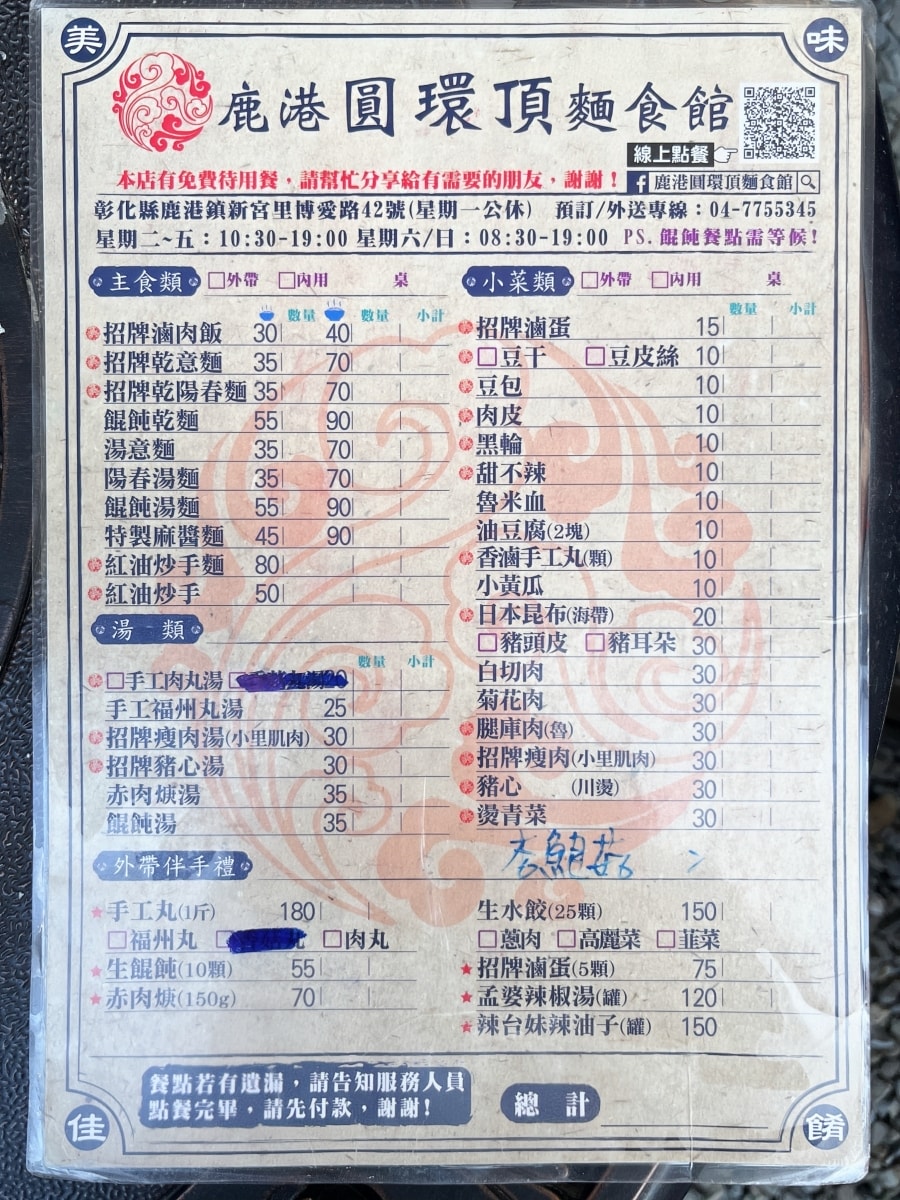 美 味
鹿港圓環頂麵食館
線上點餐
本店有免費待用餐，請幫忙分享給有需要的朋友，謝謝！ f 鹿港圓環頂麵食館
彰化縣鹿港鎮新宮里博愛路42號(星期一公休) 預訂/外送專線：04-7755345
星期二~五：10:30-19:00 星期六/日：08:30-19:00 PS. 餛飩餐點需等候!
主食類 □外帶 □內用 桌
數量 數量 小計
招牌滷肉飯 30 40
招牌乾意麵 35 70
招牌乾陽春麵 35 70
餛飩乾麵 55 90
湯意麵 35 70
陽春湯麵 35 70
餛飩湯麵 55 90
特製麻醬麵 45 90
紅油炒手麵 80
紅油炒手 50
湯 類
數量 小計
□手工肉丸湯 20
手工福州丸湯 25
招牌瘦肉湯(小里肌肉) 30
招牌豬心湯 30
赤肉焿湯 35
餛飩湯 35
小菜類 □外帶 □內用 桌
數量 小計
招牌滷蛋 15
□豆干 □豆皮絲 10
豆包 10
肉皮 10
黑輪 10
甜不辣 10
魯米血 10
油豆腐(2塊) 10
香滷手工丸(顆) 10
小黃瓜 10
日本昆布(海帶) 20
□豬頭皮 □豬耳朵 30
白切肉 30
菊花肉 30
腿庫肉(魯) 30
招牌瘦肉(小里肌肉) 30
豬心 (川燙) 30
燙青菜 30
杏鮑菇
外帶伴手禮
手工丸(1斤) 180
□福州丸 □肉丸
生餛飩(10顆) 55
赤肉焿(150g) 70
生水餃(25顆) 150
□蔥肉 □高麗菜 □韮菜
招牌滷蛋(5顆) 75
孟婆辣椒湯(罐) 120
辣台妹辣油子(罐) 150
餐點若有遺漏，請告知服務人員
點餐完畢，請先付款，謝謝!
總 計
佳 餚